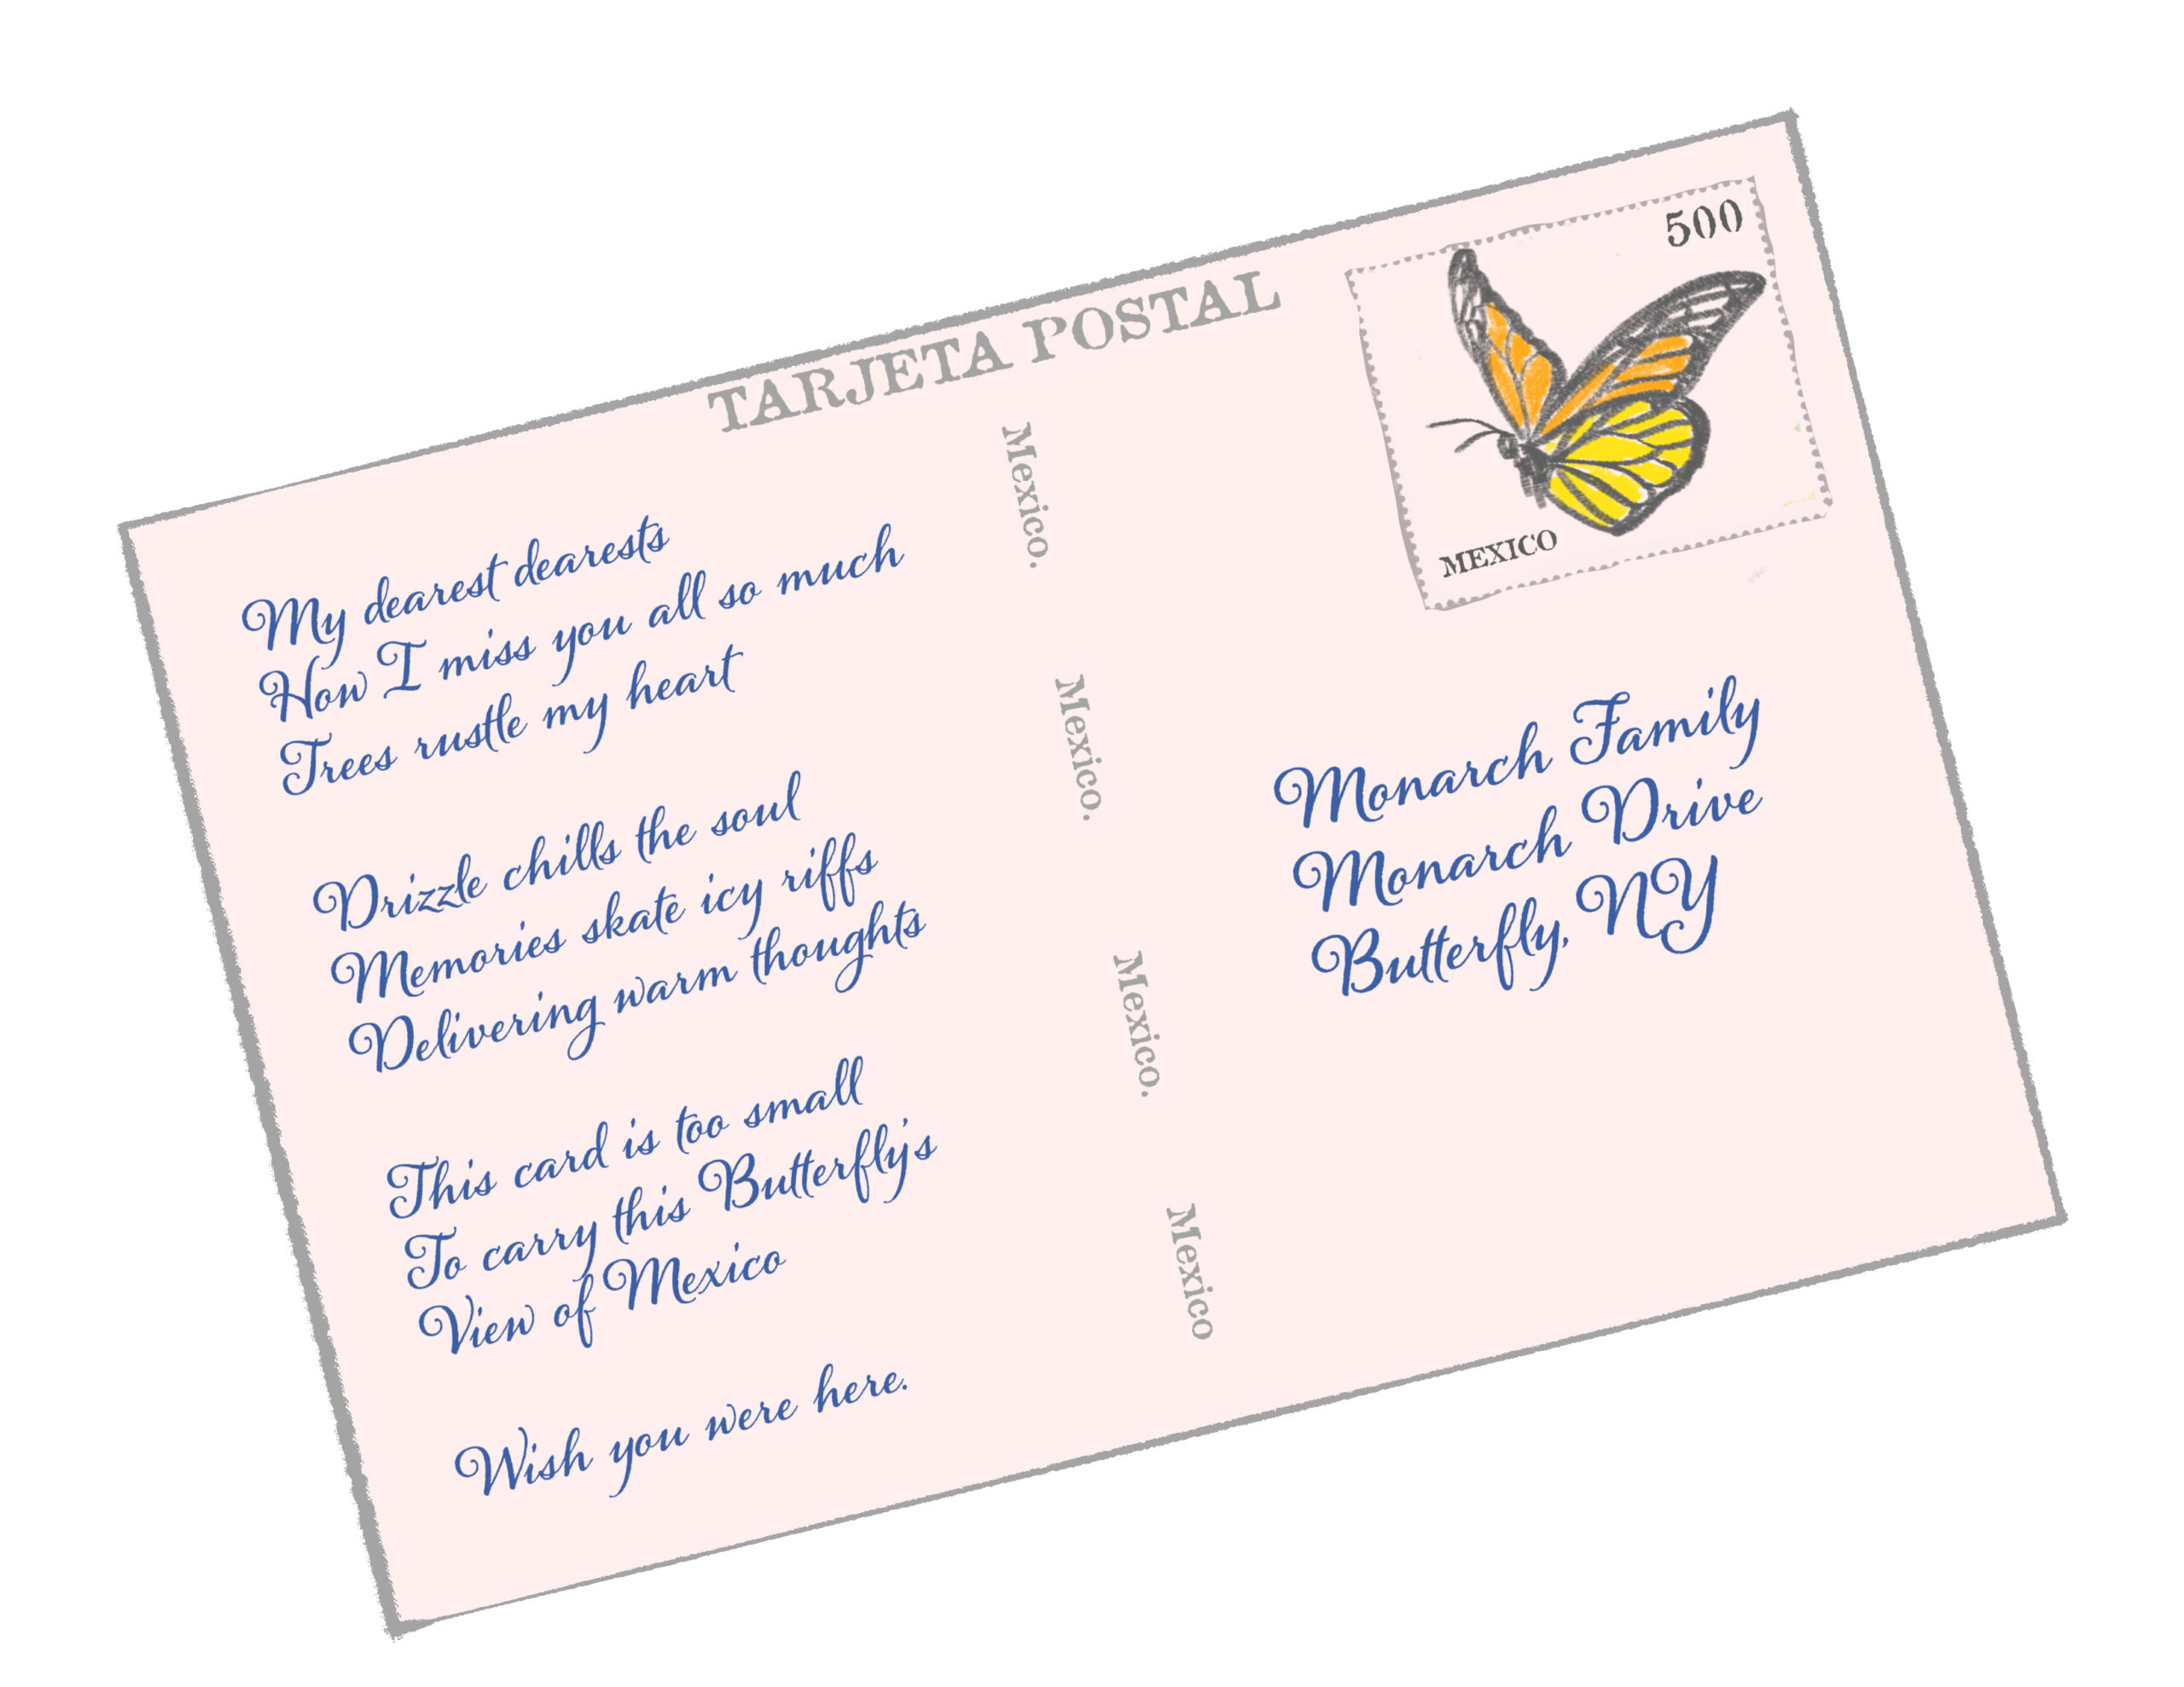 TARJETA POSTAL
500
MEXICO
My dearest dearests
How I miss you all so much
Trees rustle my heart
Drizzle chills the soul
Memories skate icy riffs
Delivering warm thoughts
This card is too small
To carry this Butterfly's
View of Mexico
Wish you were here.
Mexico.
Mexico.
Mexico.
Mexico
Monarch Family
Monarch Drive
Butterfly, NY